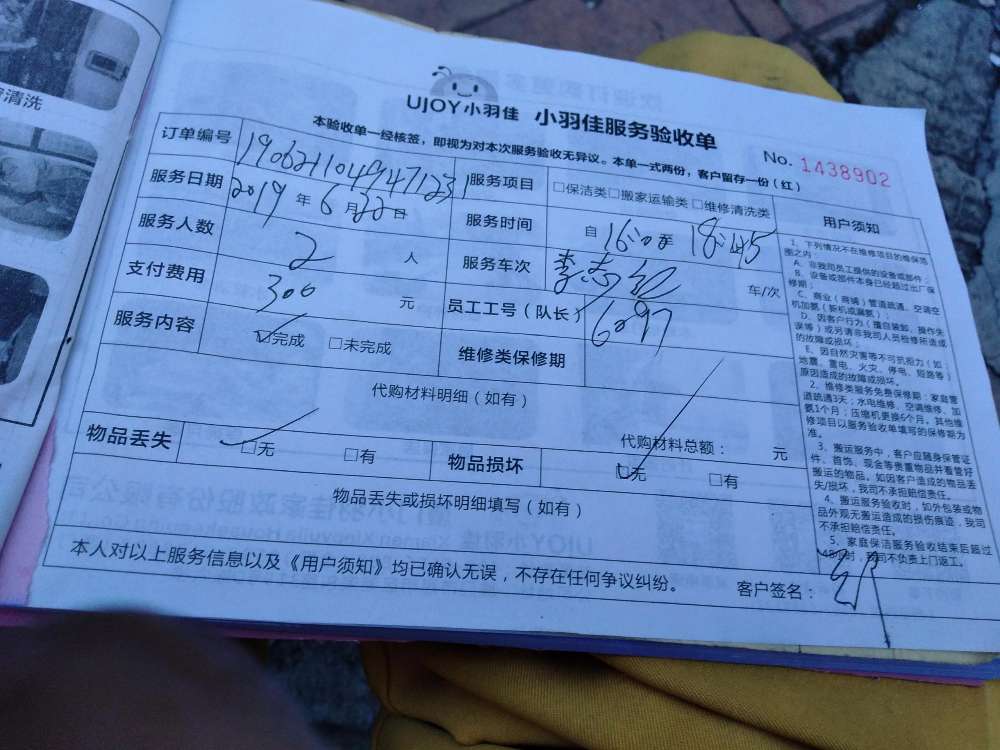 清洗
UJOY小羽佳 小羽佳服务验收单
本验收单一经核签，即视为对本次服务验收无异议。本单一式两份，客户留存一份（红）
No. 1438902
订单编号 190621104947123
服务项目 □保洁类□搬家运输类□维修清洗类
服务日期 2019年6月22日
服务时间 自16:00至18:45
服务人数 2 人
服务车次 车/次
支付费用 300 元
员工工号（队长） 6097
服务内容 ☑完成 □未完成
维修类保修期
代购材料明细（如有）
代购材料总额： 元
物品丢失 ☑无 □有
物品损坏 ☑无 □有
物品丢失或损坏明细填写（如有）
本人对以上服务信息以及《用户须知》均已确认无误，不存在任何争议纠纷。
客户签名：
用户须知
1、下列情况不在维修项目的维保范
围之内：
A、非我司员工提供的设备或部件；
B、设备或部件本身已经超过出厂保
修期；
C、商业（商铺）管道疏通、空调空
机加氨（新机或漏氨）；
D、因客户行为（擅自装卸、操作失
误等）或另请非我司人员检修所造成
的故障或损坏；
E、因自然灾害等不可抗拒力（如：
地震、雷电、火灾、停电、短路等）
原因造成的故障或损坏。
2、维修类服务免费保修期：家庭管
道疏通3天；水电维修、空调维修、加
氨1个月；压缩机更换6个月。其他维
修项目以服务验收单填写的保修期为
准。
3、搬运服务中，客户应随身保管证
件、首饰、现金等贵重物品并看管好
搬运的物品。如因客户造成的物品丢
失/损坏，我司不承担赔偿责任。
4、搬运服务验收时，如外包装或物
品外观无搬运造成的损伤痕迹，我司
不承担赔偿责任。
5、家庭保洁服务验收结束后超过
48小时，我司不负责上门返工。